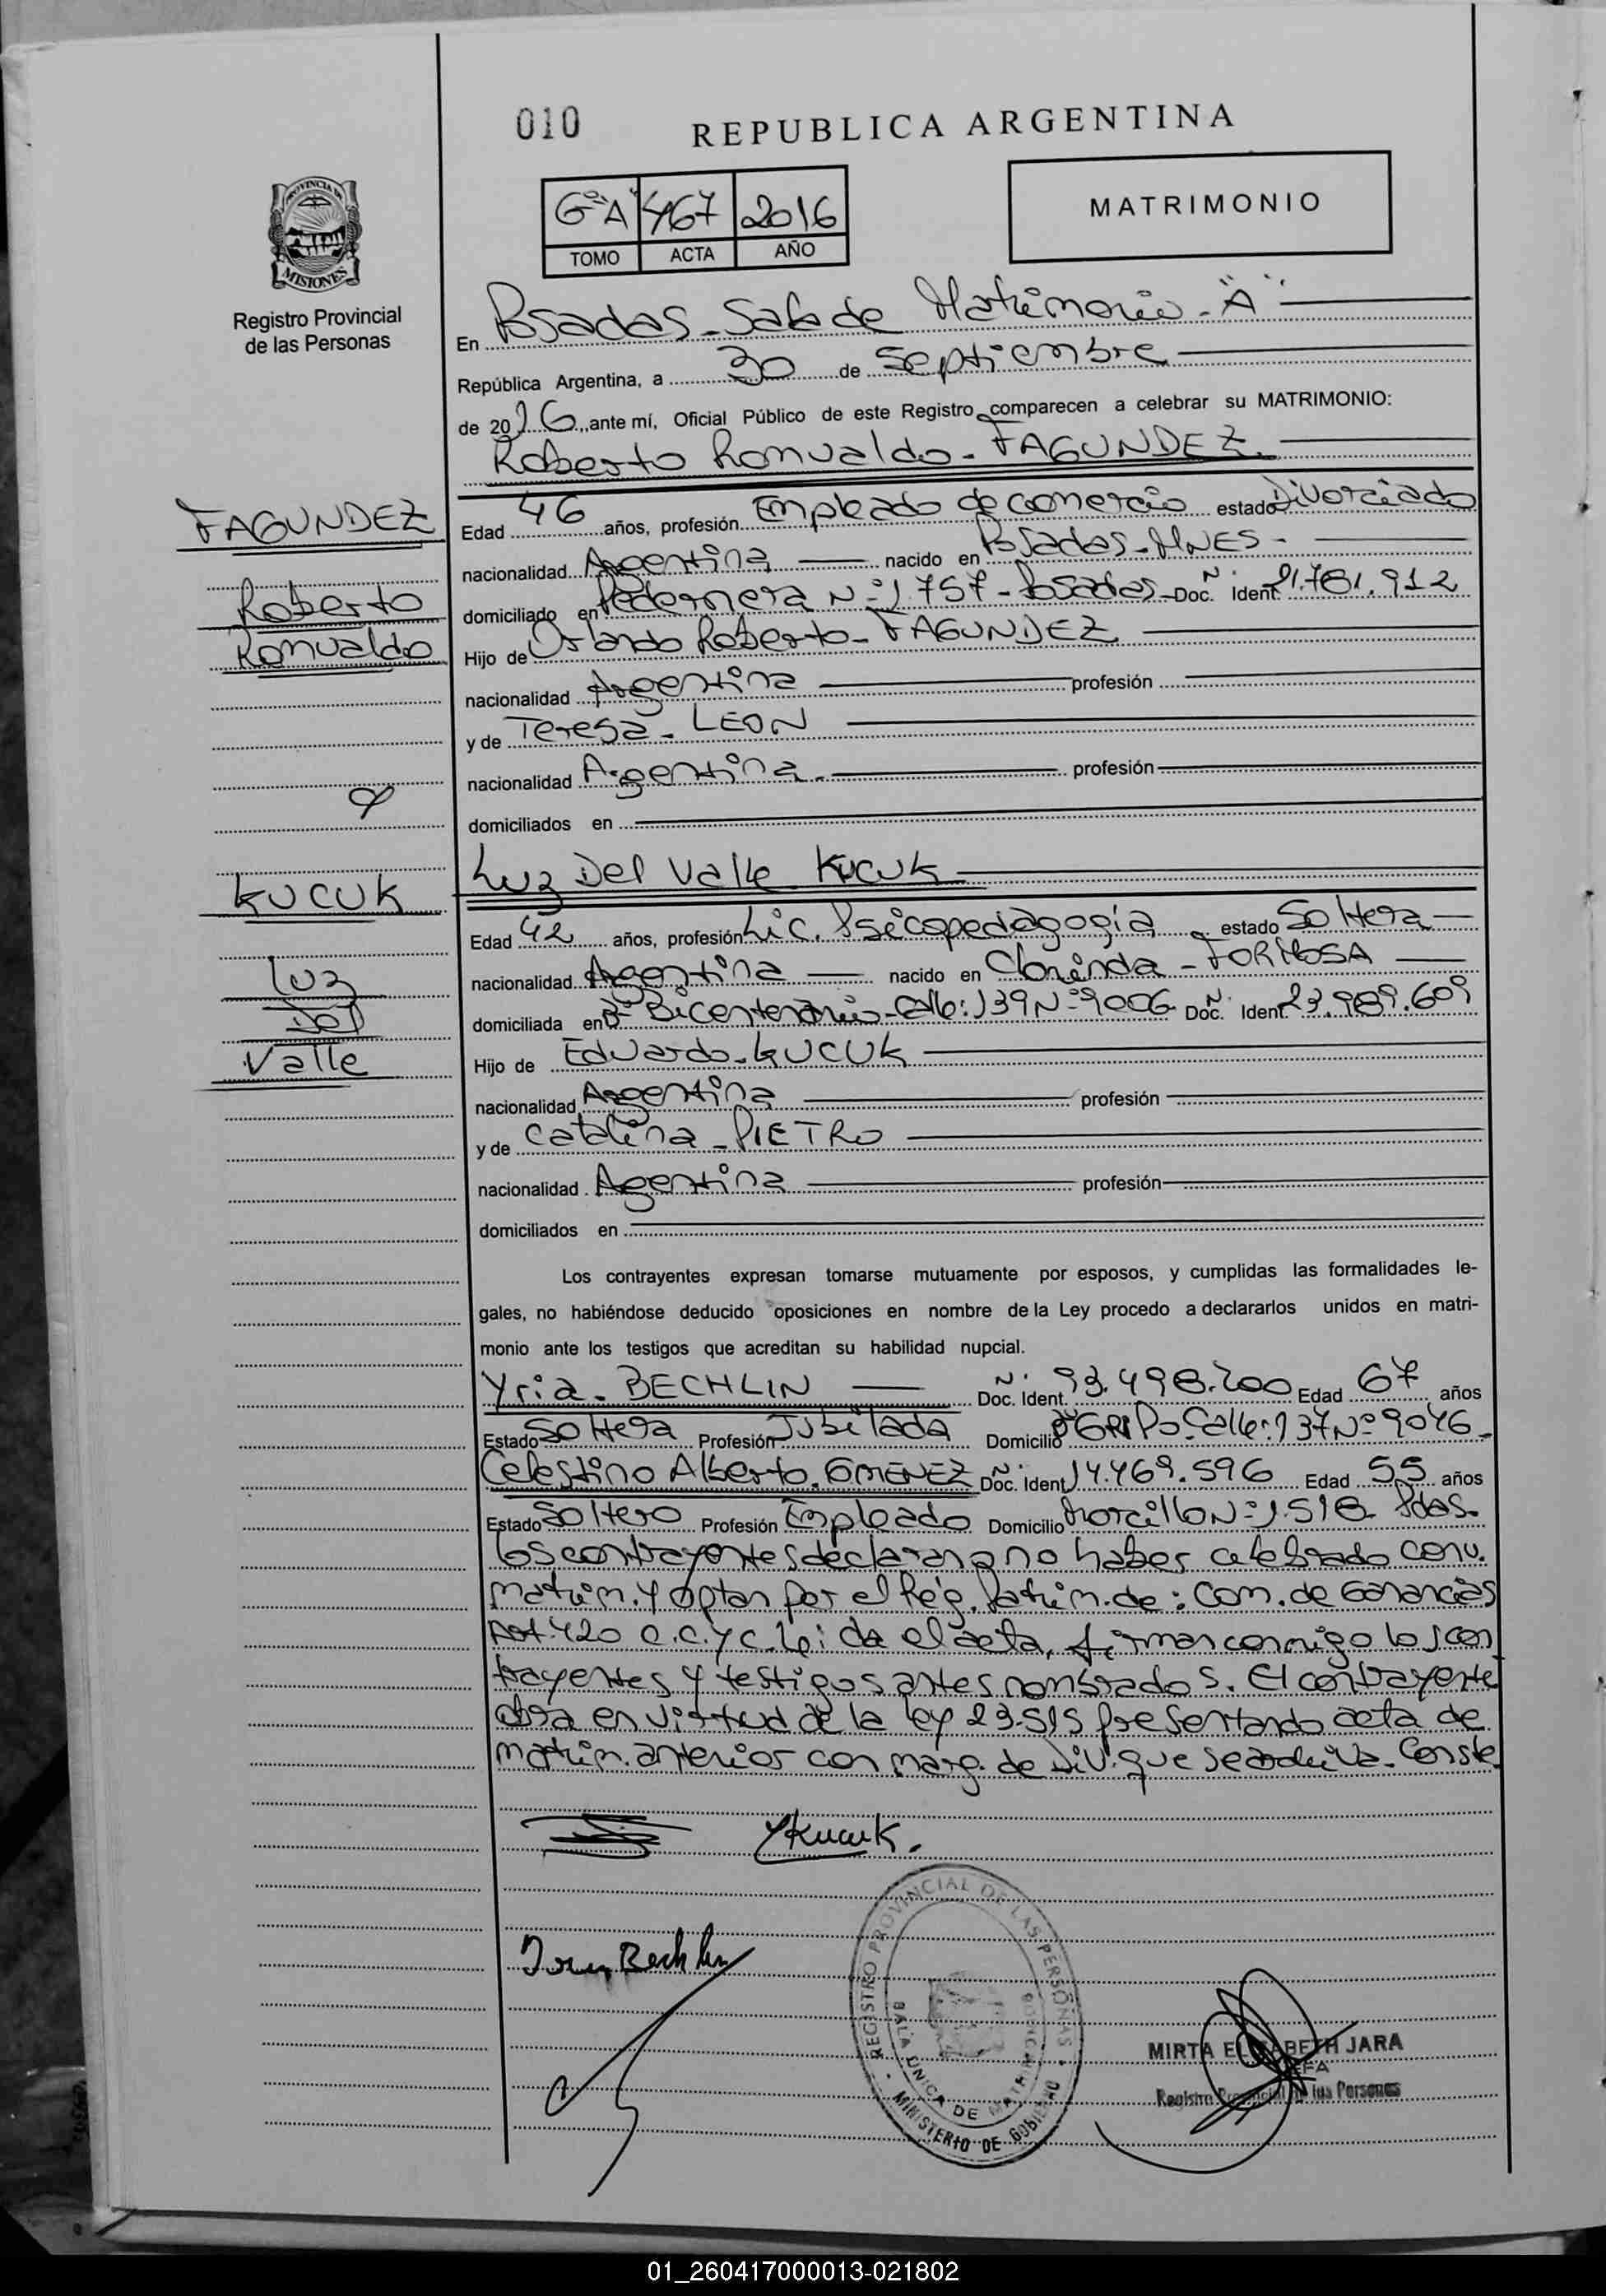 010
REPUBLICA ARGENTINA
6º"A" 467 2016
TOMO ACTA AÑO
MATRIMONIO
PROVINCIA DE
MISIONES
Registro Provincial
de las Personas
En Posadas - Sala de Matrimonio - "A"
República Argentina, a 30 de Septiembre
de 2016, ante mí, Oficial Público de este Registro comparecen a celebrar su MATRIMONIO:
Roberto Romualdo - FAGUNDEZ
FAGUNDEZ
Roberto
Romualdo
Edad 46 años, profesión Empleado de comercio estado Divorciado
nacionalidad Argentina nacido en Posadas - MNES -
domiciliado en Pedernera Nº 1757 - Posadas - Doc. Nº Ident. 21.781.912
Hijo de Orlando Roberto - FAGUNDEZ
nacionalidad Argentina profesión
y de Teresa - LEON
nacionalidad Argentina - profesión
domiciliados en
y
Luz Del Valle KUCUK
KUCUK
Luz
Del
Valle
Edad 42 años, profesión Lic. Psicopedagogia estado Soltera
nacionalidad Argentina nacido en Clorinda - FORMOSA
domiciliada en Bº Bicentenario - Calle: 139 Nº 9006 Doc. Nº Ident. 23.989.609
Hijo de Eduardo - KUCUK
nacionalidad Argentina profesión
y de Catalina - PIETRO
nacionalidad Argentina profesión
domiciliados en
Los contrayentes expresan tomarse mutuamente por esposos, y cumplidas las formalidades le-
gales, no habiéndose deducido oposiciones en nombre de la Ley procedo a declararlos unidos en matri-
monio ante los testigos que acreditan su habilidad nupcial.
Yria - BECHLIN Doc. Nº Ident. 93.498.200 Edad 67 años
Estado Soltera Profesión Jubilada Domicilio Calle: 137 Nº 9046 -
Celestino Alberto. GIMENEZ Doc. Nº Ident. 14.469.596 Edad 55 años
Estado Soltero Profesión Empleado Domicilio Morcillo Nº 1.518 - Pdas.
Los contrayentes declaran no haber celebrado conv.
matrim. y optan por el Rég. Patrim. de: Com. de Ganancias
Art. 420 C.C.y C. Leída el acta, firman conmigo los con
trayentes y testigos antes nombrados. El contrayente
obra en virtud de la ley 23.515 presentando acta de
matrim. anterior con marg. de Div. que se archiva. Conste
Kucuk.
Bechlin
REGISTRO PROVINCIAL DE LAS PERSONAS
SALA UNICA DE
MINISTERIO DE GOBIERNO
MIRTA ELISABETH JARA
JEFA
Registro Provincial de las Personas
01_260417000013-021802